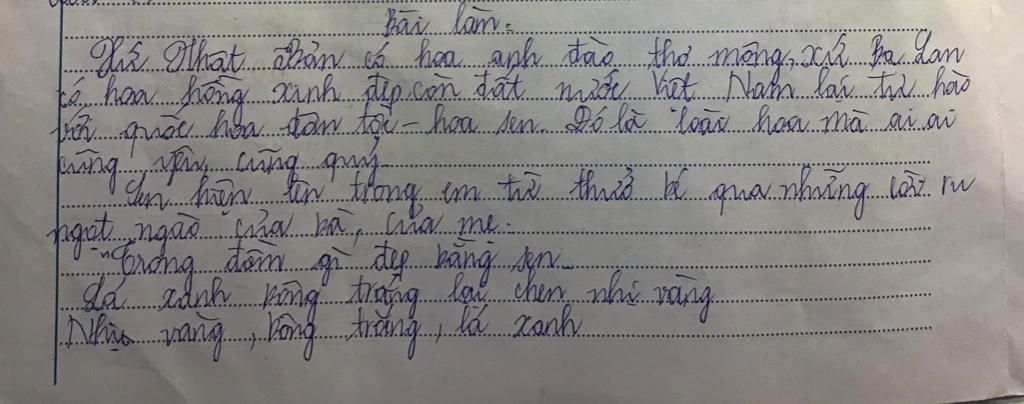 Bài làm:
Xứ Nhật Bản có hoa anh đào thơ mộng, xứ Ba Lan
có hoa hồng xinh đẹp còn đất nước Việt Nam lại tự hào
với quốc hoa dân tộc - hoa sen. Đó là loài hoa mà ai ai
cũng yêu, cũng quý.
Sen hiện lên trong em từ thuở bé qua những lời ru
ngọt ngào của bà, của mẹ.
"Trong đầm gì đẹp bằng sen
Lá xanh bông trắng lại chen nhị vàng
Nhị vàng, bông trắng, lá xanh